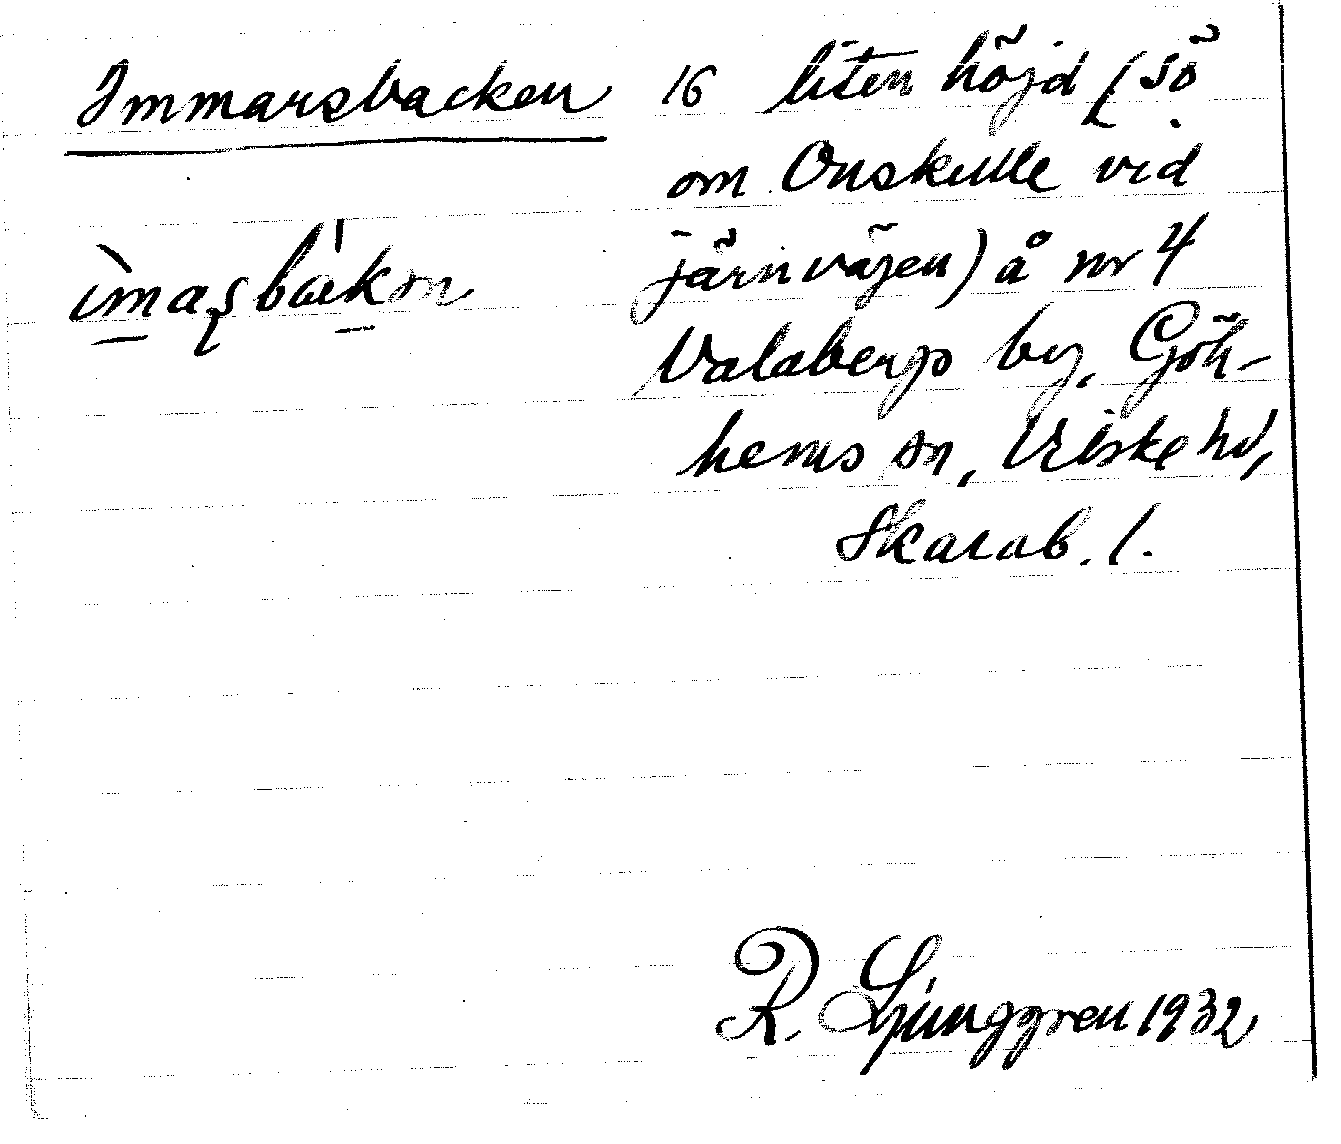 Immarsbacken 16 liten höjd (sö
om Onskulle vid
järnvägen) å nr 4
Valabergs by, Göt-
hems sn, Vilske hd,
Skarab. l.
R. Ljunggren 1932